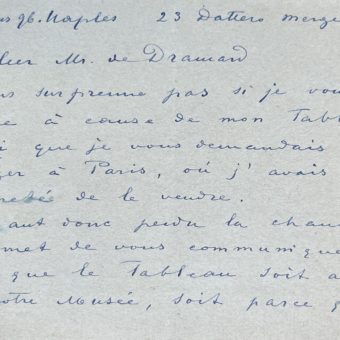 96. Naples 23 Dattero Merge
Mr. de Dramard
surprenne pas si je vou
e à cause de mon Tabl
i que je vous demandais
ger à Paris, où j'avais
de le vendre.
ant donc perdu la chan
met de vous communique
que le Tableau soit a
otre Musée, soit parce q